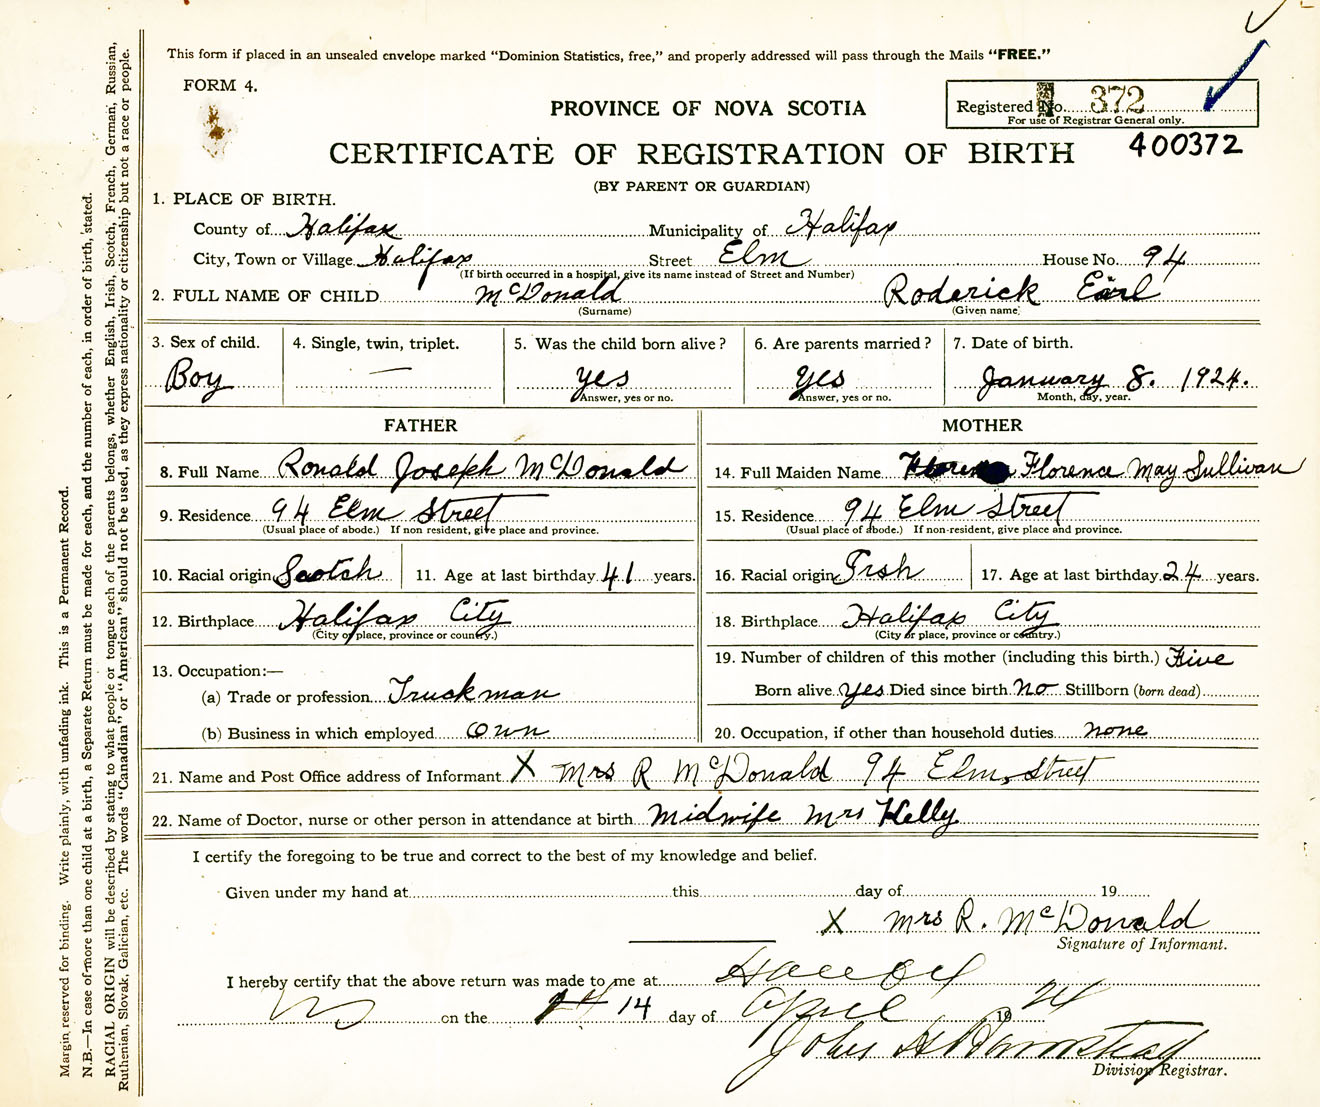 This form if placed in an unsealed envelope marked “Dominion Statistics, free,” and properly addressed will pass through the Mails “FREE.”
FORM 4.
Registered No. 372
For use of Registrar General only.
PROVINCE OF NOVA SCOTIA
400372
CERTIFICATE OF REGISTRATION OF BIRTH
(BY PARENT OR GUARDIAN)
1. PLACE OF BIRTH.
County of Halifax Municipality of Halifax
City, Town or Village Halifax Street Elm House No. 94
(If birth occurred in a hospital, give its name instead of Street and Number)
2. FULL NAME OF CHILD McDonald Roderick Earl
(Surname) (Given name)
3. Sex of child. 4. Single, twin, triplet. 5. Was the child born alive? 6. Are parents married? 7. Date of birth.
Boy — yes yes January 8. 1924.
Answer, yes or no. Answer, yes or no. Month, day, year.
FATHER MOTHER
8. Full Name Ronald Joseph McDonald 14. Full Maiden Name Florence May Sullivan
9. Residence 94 Elm Street 15. Residence 94 Elm Street
(Usual place of abode.) If non resident, give place and province. (Usual place of abode.) If non-resident, give place and province.
10. Racial origin Scotch 11. Age at last birthday 41 years. 16. Racial origin Irsh 17. Age at last birthday 24 years.
12. Birthplace Halifax City 18. Birthplace Halifax City
(City or place, province or country.) (City or place, province or country.)
13. Occupation:— 19. Number of children of this mother (including this birth.) Five
(a) Trade or profession Truckman Born alive yes Died since birth no Stillborn (born dead)
(b) Business in which employed Own 20. Occupation, if other than household duties none
21. Name and Post Office address of Informant X Mrs R McDonald 94 Elm, Street
22. Name of Doctor, nurse or other person in attendance at birth Midwife Mrs Kelly
I certify the foregoing to be true and correct to the best of my knowledge and belief.
Given under my hand at this day of 19
X Mrs R. McDonald
Signature of Informant.
I hereby certify that the above return was made to me at
on the 14 day of April 1924
John H
Division Registrar.
Margin reserved for binding. Write plainly, with unfading ink. This is a Permanent Record.
N.B.—In case of more than one child at a birth, a Separate Return must be made for each, and the number of each, in order of birth, stated.
RACIAL ORIGIN will be described by stating to what people or tongue each of the parents belongs, whether English, Irish, Scotch, French, German, Russian,
Ruthenian, Slovak, Galician, etc. The words “Canadian” or “American” should not be used, as they express nationality or citizenship but not a race or people.